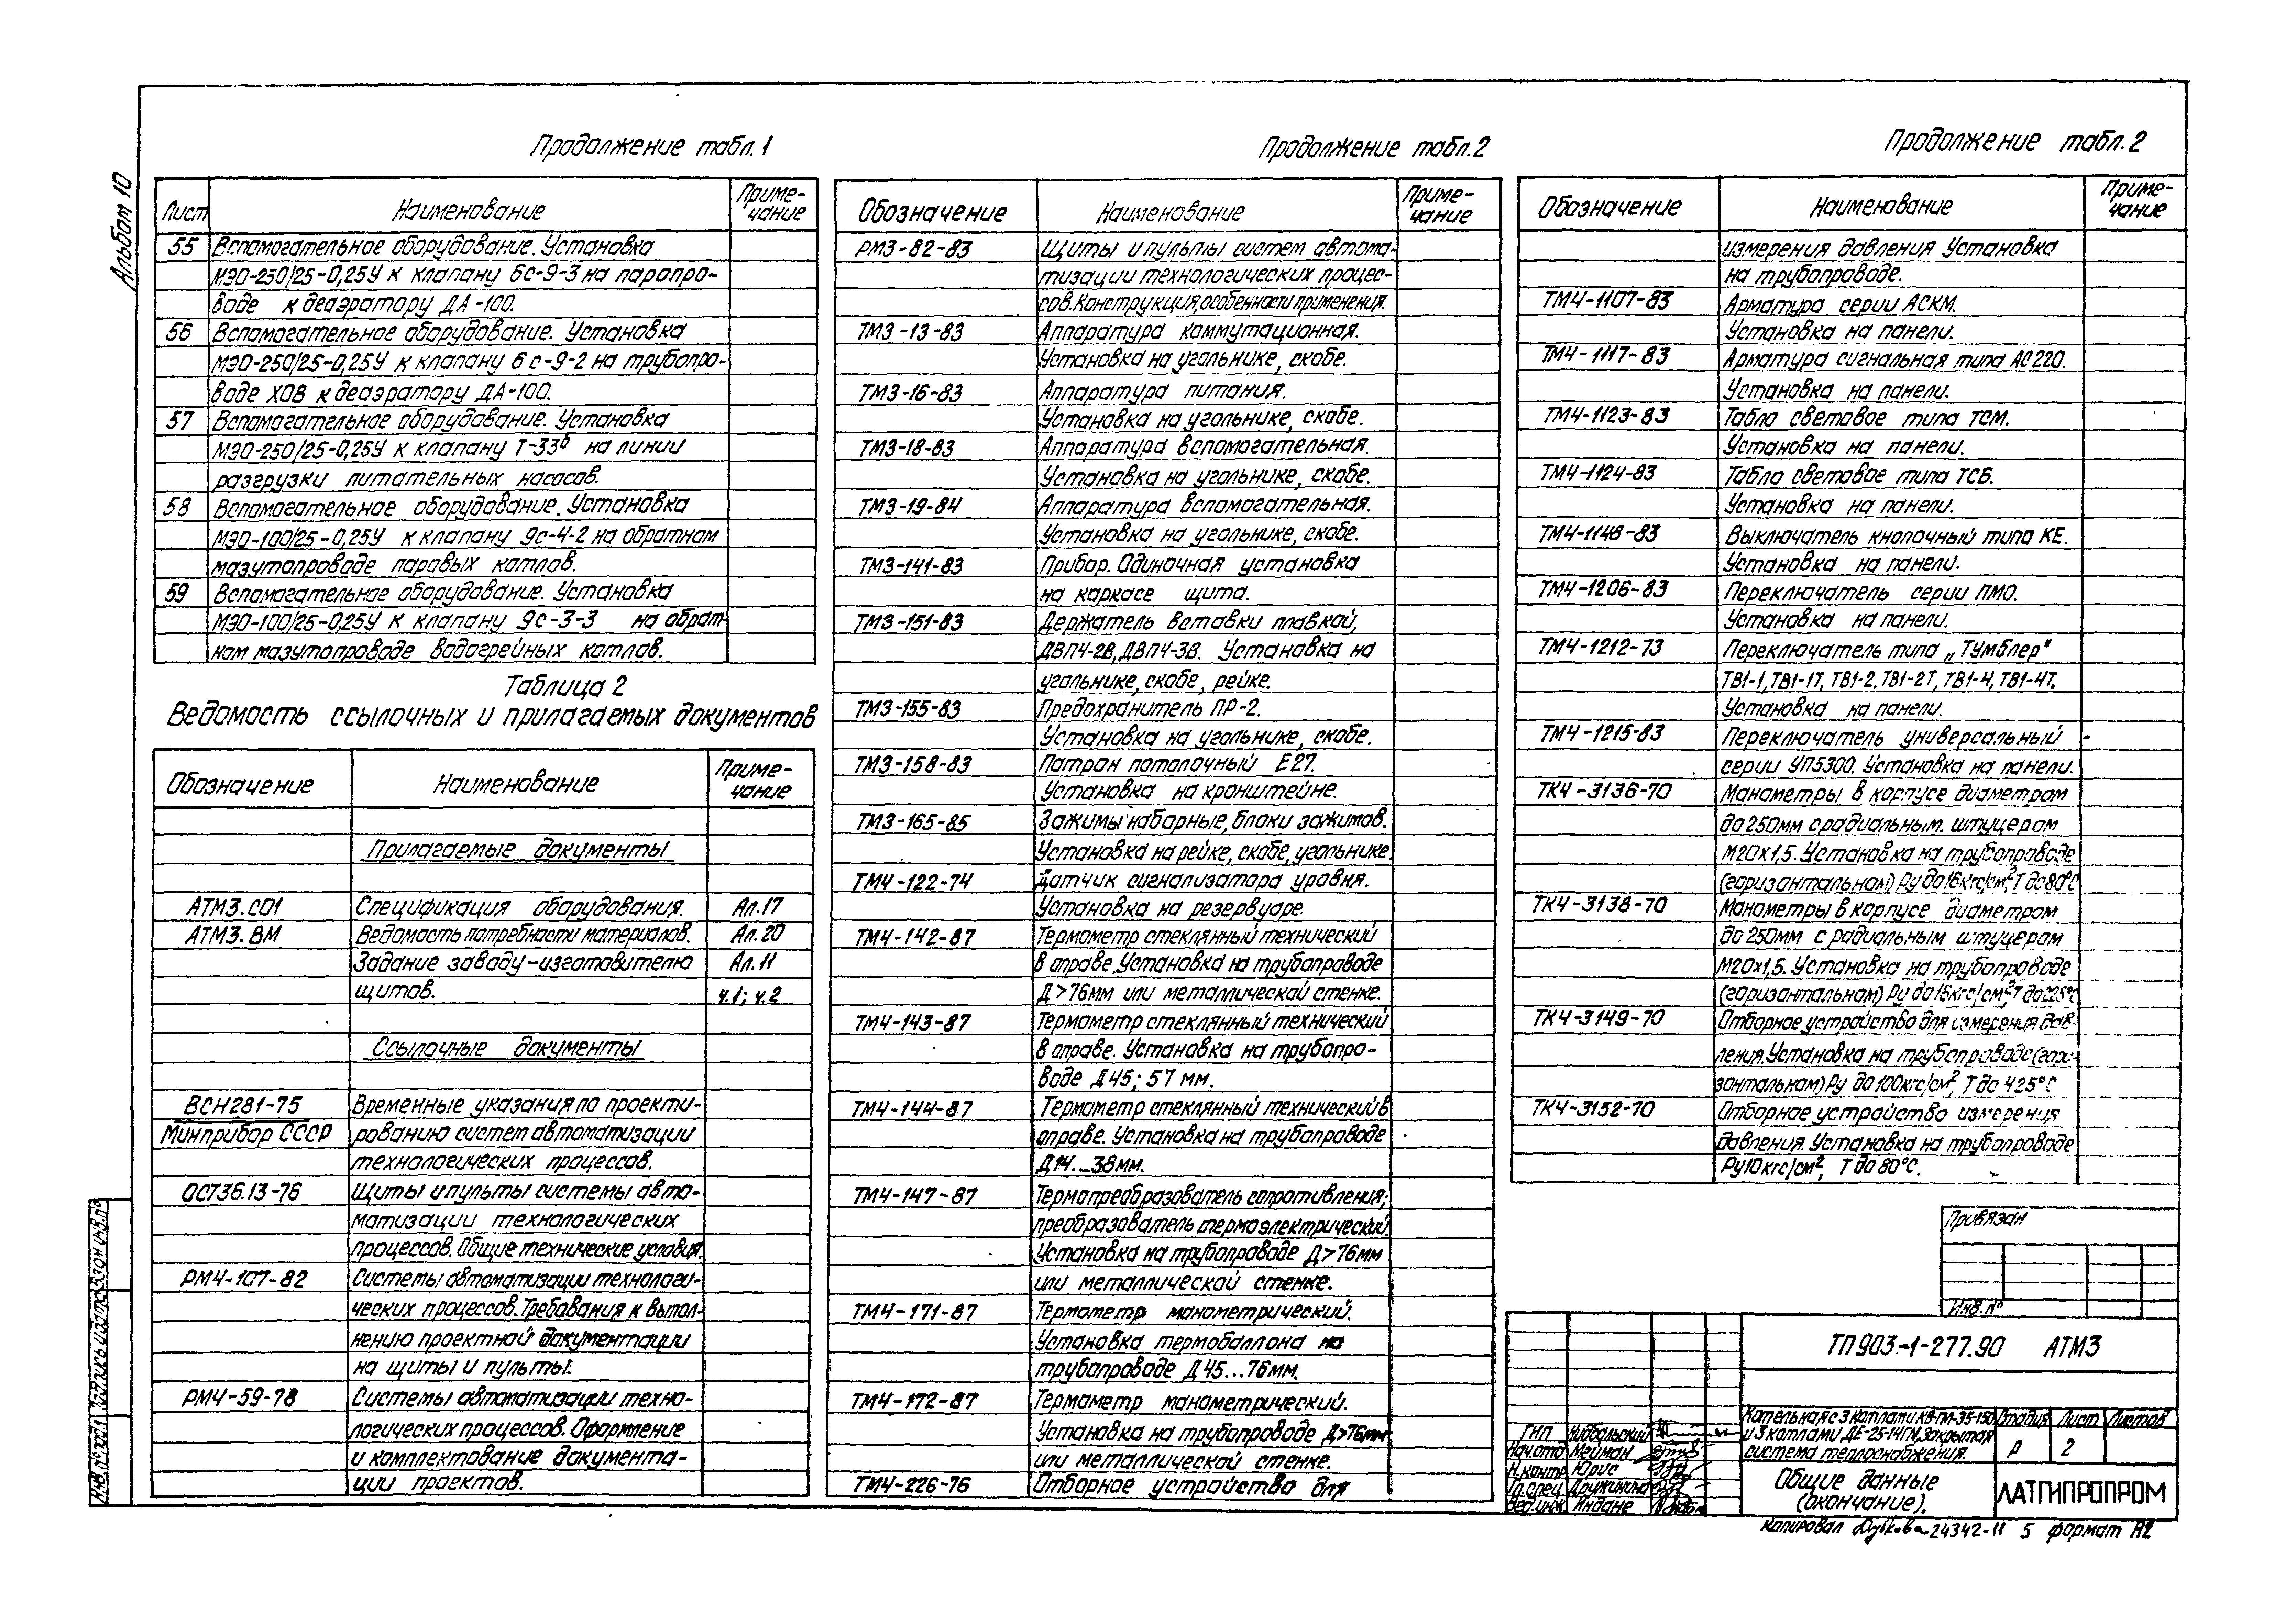 Альбом 10
Продолжение табл. 1
Лист Наименование Приме-
чание
55 Вспомогательное оборудование. Установка
МЭО-250/25-0,25У к клапану 6с-9-3 на паропро-
воде к деаэратору ДА-100.
56 Вспомогательное оборудование. Установка
МЭО-250/25-0,25У к клапану 6с-9-2 на трубопро-
воде ХОВ к деаэратору ДА-100.
57 Вспомогательное оборудование. Установка
МЭО-250/25-0,25У к клапану Т-33б на линии
разгрузки питательных насосов.
58 Вспомогательное оборудование. Установка
МЭО-100/25-0,25У к клапану 9с-4-2 на обратном
мазутопроводе паровых котлов.
59 Вспомогательное оборудование. Установка
МЭО-100/25-0,25У к клапану 9с-3-3 на обрат-
ном мазутопроводе водогрейных котлов.
Таблица 2
Ведомость ссылочных и прилагаемых документов
Обозначение Наименование Приме-
чание
Прилагаемые документы
АТМ3.СО1 Спецификация оборудования. Ал.17
АТМ3.ВМ Ведомость потребности материалов. Ал.20
Задание заводу-изготовителю Ал.11
щитов. ч.1; ч.2
Ссылочные документы
ВСН281-75 Временные указания по проекти-
Минприбор СССР рованию систем автоматизации
технологических процессов.
ОСТ36.13-76 Щиты и пульты системы авто-
матизации технологических
процессов. Общие технические условия.
РМ4-107-82 Системы автоматизации технологи-
ческих процессов. Требования к выпол-
нению проектной документации
на щиты и пульты.
РМ4-59-78 Системы автоматизации техно-
логических процессов. Оформление
и комплектование документа-
ции проектов.
Продолжение табл. 2
Обозначение Наименование Приме-
чание
РМ3-82-83 Щиты и пульты систем автома-
тизации технологических процес-
сов. Конструкция, особенности применения.
ТМ3-13-83 Аппаратура коммутационная.
Установка на угольнике, скобе.
ТМ3-16-83 Аппаратура питания.
Установка на угольнике, скобе.
ТМ3-18-83 Аппаратура вспомогательная.
Установка на угольнике, скобе.
ТМ3-19-84 Аппаратура вспомогательная.
Установка на угольнике, скобе.
ТМ3-141-83 Прибор. Одиночная установка
на каркасе щита.
ТМ3-151-83 Держатель вставки плавкой,
ДВП4-2В, ДВП4-3В. Установка на
угольнике, скобе, рейке.
ТМ3-155-83 Предохранитель ПР-2.
Установка на угольнике, скобе.
ТМ3-158-83 Патрон потолочный Е27.
Установка на кронштейне.
ТМ3-165-85 Зажимы наборные, блоки зажимов.
Установка на рейке, скобе, угольнике.
ТМ4-122-74 Датчик сигнализатора уровня.
Установка на резервуаре.
ТМ4-142-87 Термометр стеклянный технический
в оправе. Установка на трубопроводе
Д>76мм или металлической стенке.
ТМ4-143-87 Термометр стеклянный технический
в оправе. Установка на трубопро-
воде Д45; 57 мм.
ТМ4-144-87 Термометр стеклянный технический в
оправе. Установка на трубопроводе
Д14...38мм.
ТМ4-147-87 Термопреобразователь сопротивления;
преобразователь термоэлектрический.
Установка на трубопроводе Д>76мм
или металлической стенке.
ТМ4-171-87 Термометр манометрический.
Установка термобаллона на
трубопроводе Д45...76мм.
ТМ4-172-87 Термометр манометрический.
Установка на трубопроводе Д>76мм
или металлической стенке.
ТМ4-226-76 Отборное устройство для
Продолжение табл. 2
Обозначение Наименование Приме-
чание
измерения давления Установка
на трубопроводе.
ТМ4-1107-83 Арматура серии АСКМ.
Установка на панели.
ТМ4-1117-83 Арматура сигнальная типа АС220.
Установка на панели.
ТМ4-1123-83 Табло световое типа ТСМ.
Установка на панели.
ТМ4-1124-83 Табло световое типа ТСБ.
Установка на панели.
ТМ4-1148-83 Выключатель кнопочный типа КЕ.
Установка на панели.
ТМ4-1206-83 Переключатель серии ПМО.
Установка на панели.
ТМ4-1212-73 Переключатель типа „Тумблер"
ТВ1-1, ТВ1-1Т, ТВ1-2, ТВ1-2Т, ТВ1-4, ТВ1-4Т.
Установка на панели.
ТМ4-1215-83 Переключатель универсальный
серии УП5300. Установка на панели.
ТК4-3136-70 Манометры в корпусе диаметром
до 250мм с радиальным. штуцером
М20х1,5. Установка на трубопроводе
(горизонтальном) Ру до 16кгс/см², Т до 80°С
ТК4-3138-70 Манометры в корпусе диаметром
до 250мм с радиальным штуцером
М20х1,5. Установка на трубопроводе
(горизонтальном) Ру до 16кгс/см², Т до 225°С
ТК4-3149-70 Отборное устройство для измерения дав-
ления. Установка на трубопроводе (гори-
зонтальном) Ру до 100кгс/см², Т до 425°С
ТК4-3152-70 Отборное устройство измерения
давления. Установка на трубопроводе
Ру10кгс/см², Т до 80°С.
Привязан
Инв. №
ТП 903-1-277.90 АТМ3
Котельная с 3 котлами КВ-ГМ-35-150
и 3 котлами ДЕ-25-14ГМ. Закрытая
система теплоснабжения.
Стадия Лист Листов
Р 2
ГИП Нидбальский
Нач.отд Мейман
Н.контр Юрис
Гл.спец Дружинина
Вед.инж Индане
Общие данные
(окончание).
ЛАТГИПРОПРОМ
Копировал 24342-11 5 формат А2
Инв.№ подл. Подпись и дата Взам.инв.№